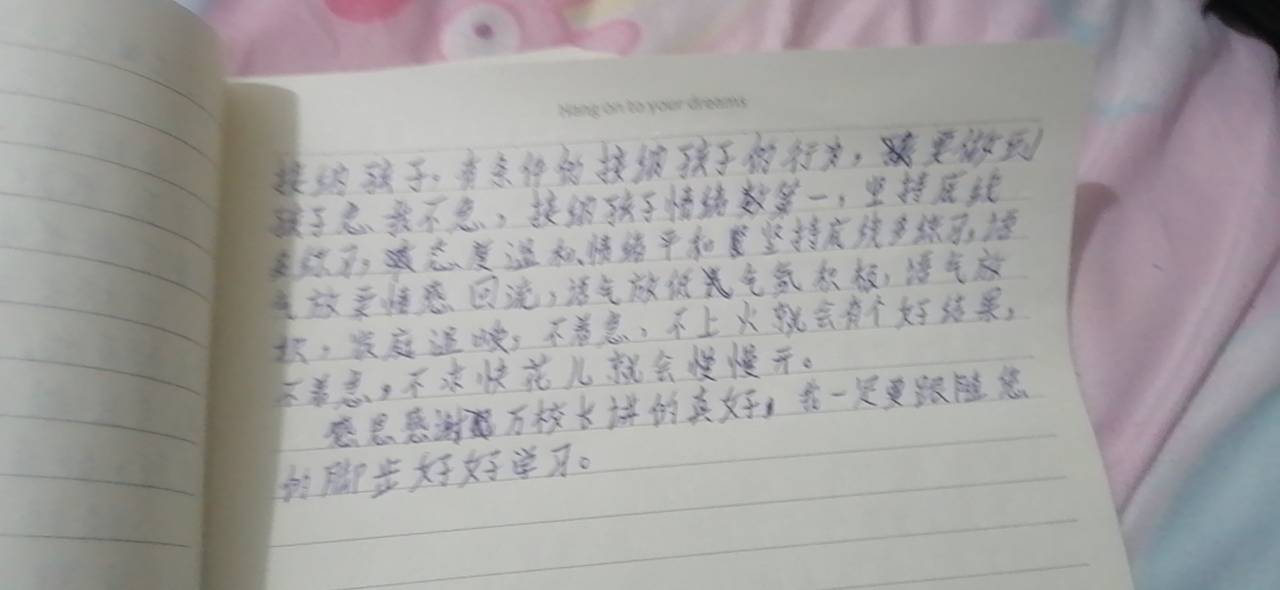 Hang on to your dreams
接纳孩子。有条件的接纳孩子的行为，要做到
孩子急我不急，接纳孩子情绪数第一，坚持底线
多练习，态度温和情绪平和坚持底线多练习，语
气放要情感回流，语气放低气氛积极，语气放
松，家庭温暖，不着急，不上火就会有个好结果，
不着急，不求快花儿就会慢慢开。
感恩感谢万校长讲的真好，我一定要跟随您
的脚步好好学习。